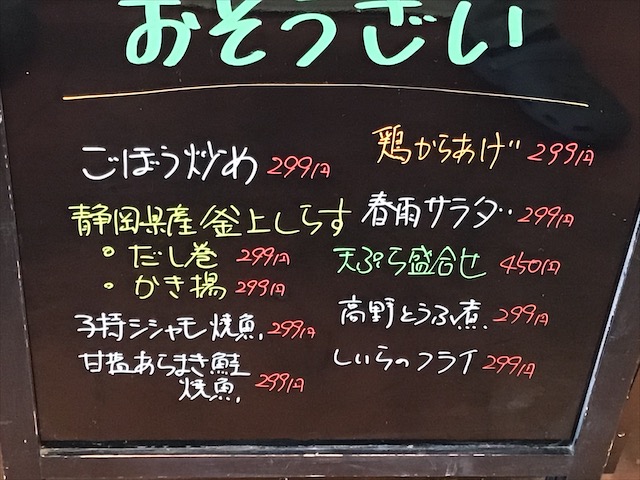 おそうざい
ごぼう炒め 299円
静岡県産釜上しらす
・だし巻 299円
・かき揚 299円
子持シシャモ焼魚 299円
甘塩あらまき鮭
焼魚 299円
鶏からあげ 299円
春雨サラダ 299円
天ぷら盛合せ 450円
高野とうふ煮 299円
しいらのフライ 299円